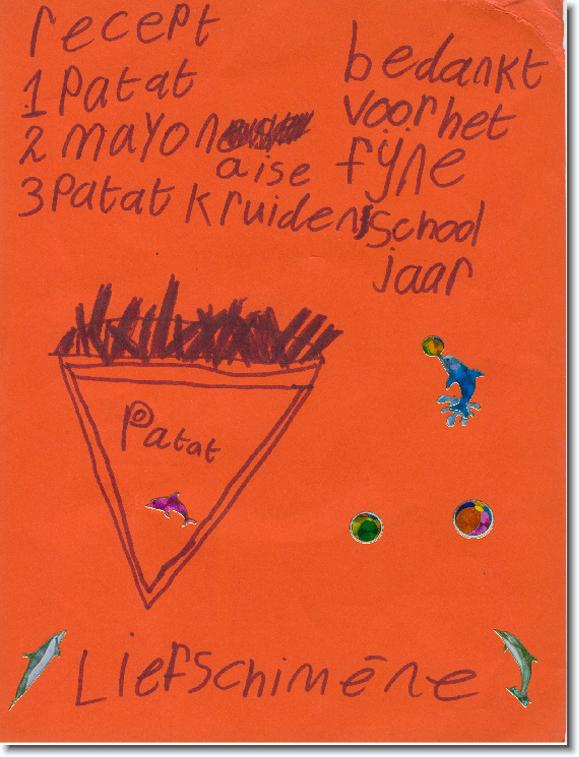 recept
1 patat
2 mayon
aise
3 patat kruiden
bedankt
voor het
fijne
school
jaar
Patat
Liefs chimēne